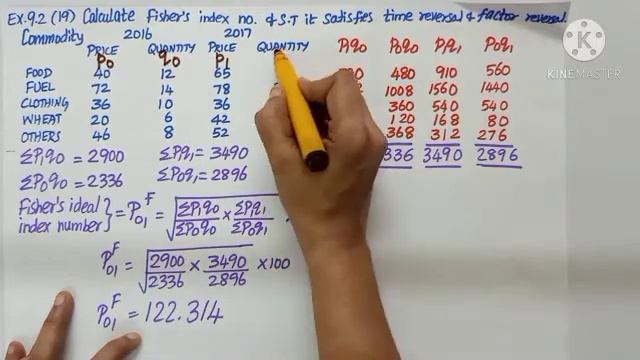 Ex.9.2 (19) Calculate Fisher's index no. & S.T it satisfies time reversal & factor reversal.
Commodity 2016 2017
PRICE QUANTITY PRICE QUANTITY P1q0 P0q0 P1q1 P0q1
P0 q0 P1
FOOD 40 12 65 480 910 560
FUEL 72 14 78 1008 1560 1440
CLOTHING 36 10 36 360 540 540
WHEAT 20 6 42 120 168 80
OTHERS 46 8 52 368 312 276
ΣP1q0 = 2900 ΣP1q1 = 3490 336 3490 2896
ΣP0q0 = 2336 ΣP0q1 = 2896
Fisher's ideal index number} = P01^F = √(ΣP1q0/ΣP0q0 × ΣP1q1/ΣP0q1)
P01^F = √(2900/2336 × 3490/2896) × 100
P01^F = 122.314
KINEMASTER